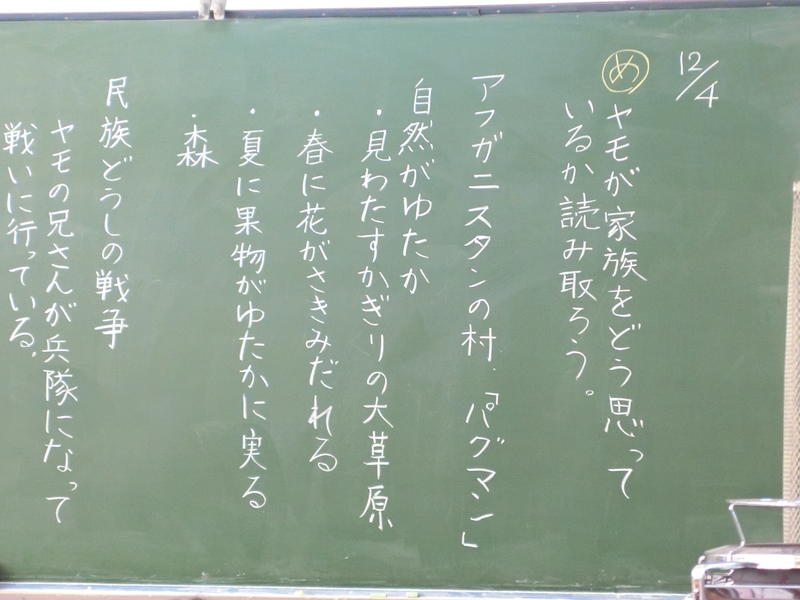 12/4
め ヤモが家族をどう思って
いるか読み取ろう。
アフガニスタンの村、「パグマン」
自然がゆたか
・見わたすかぎりの大草原
・春に花がさきみだれる
・夏に果物がゆたかに実る
・森
民族どうしの戦争
ヤモの兄さんが兵隊になって
戦いに行っている。